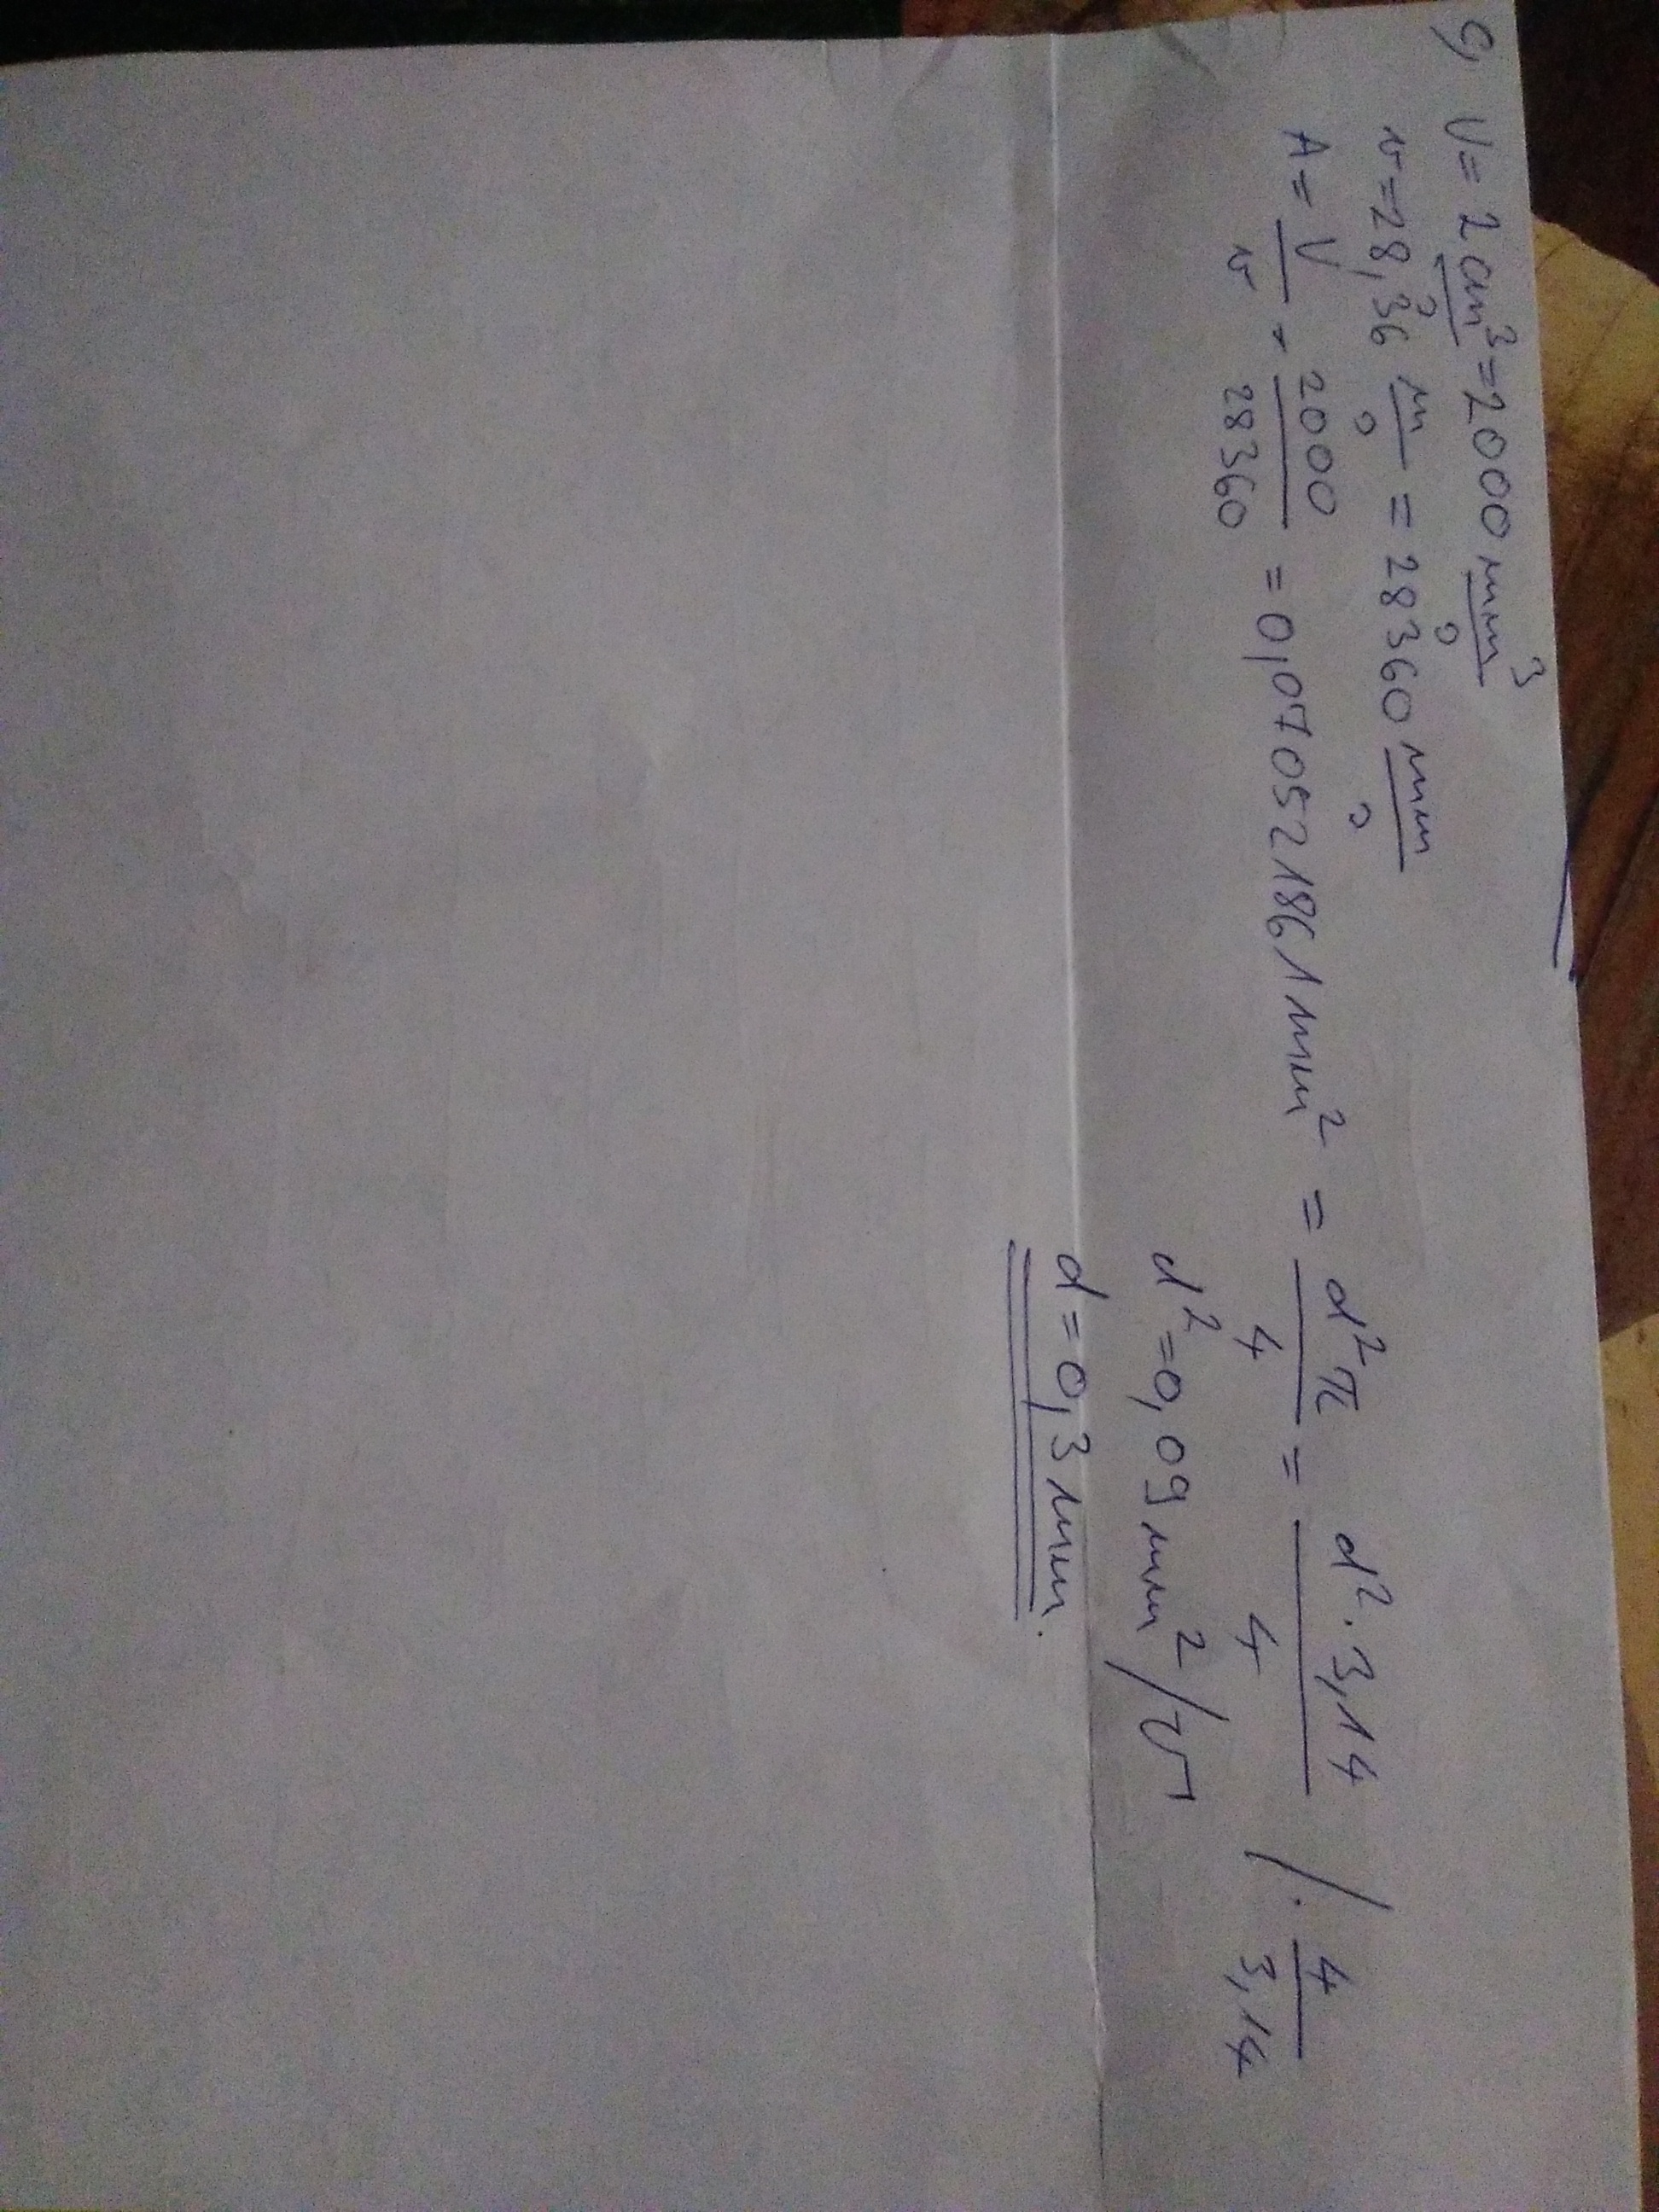 9, V = 2 cm³ = 2000 mm³
v = 28,36 m/s = 28360 mm/s
A = V/v = 2000/28360 = 0,07052186 1mm² = d²π/4 = d²·3,14/4 /· 4/3,14
d² = 0,09 mm² /√
d = 0,3 mm.